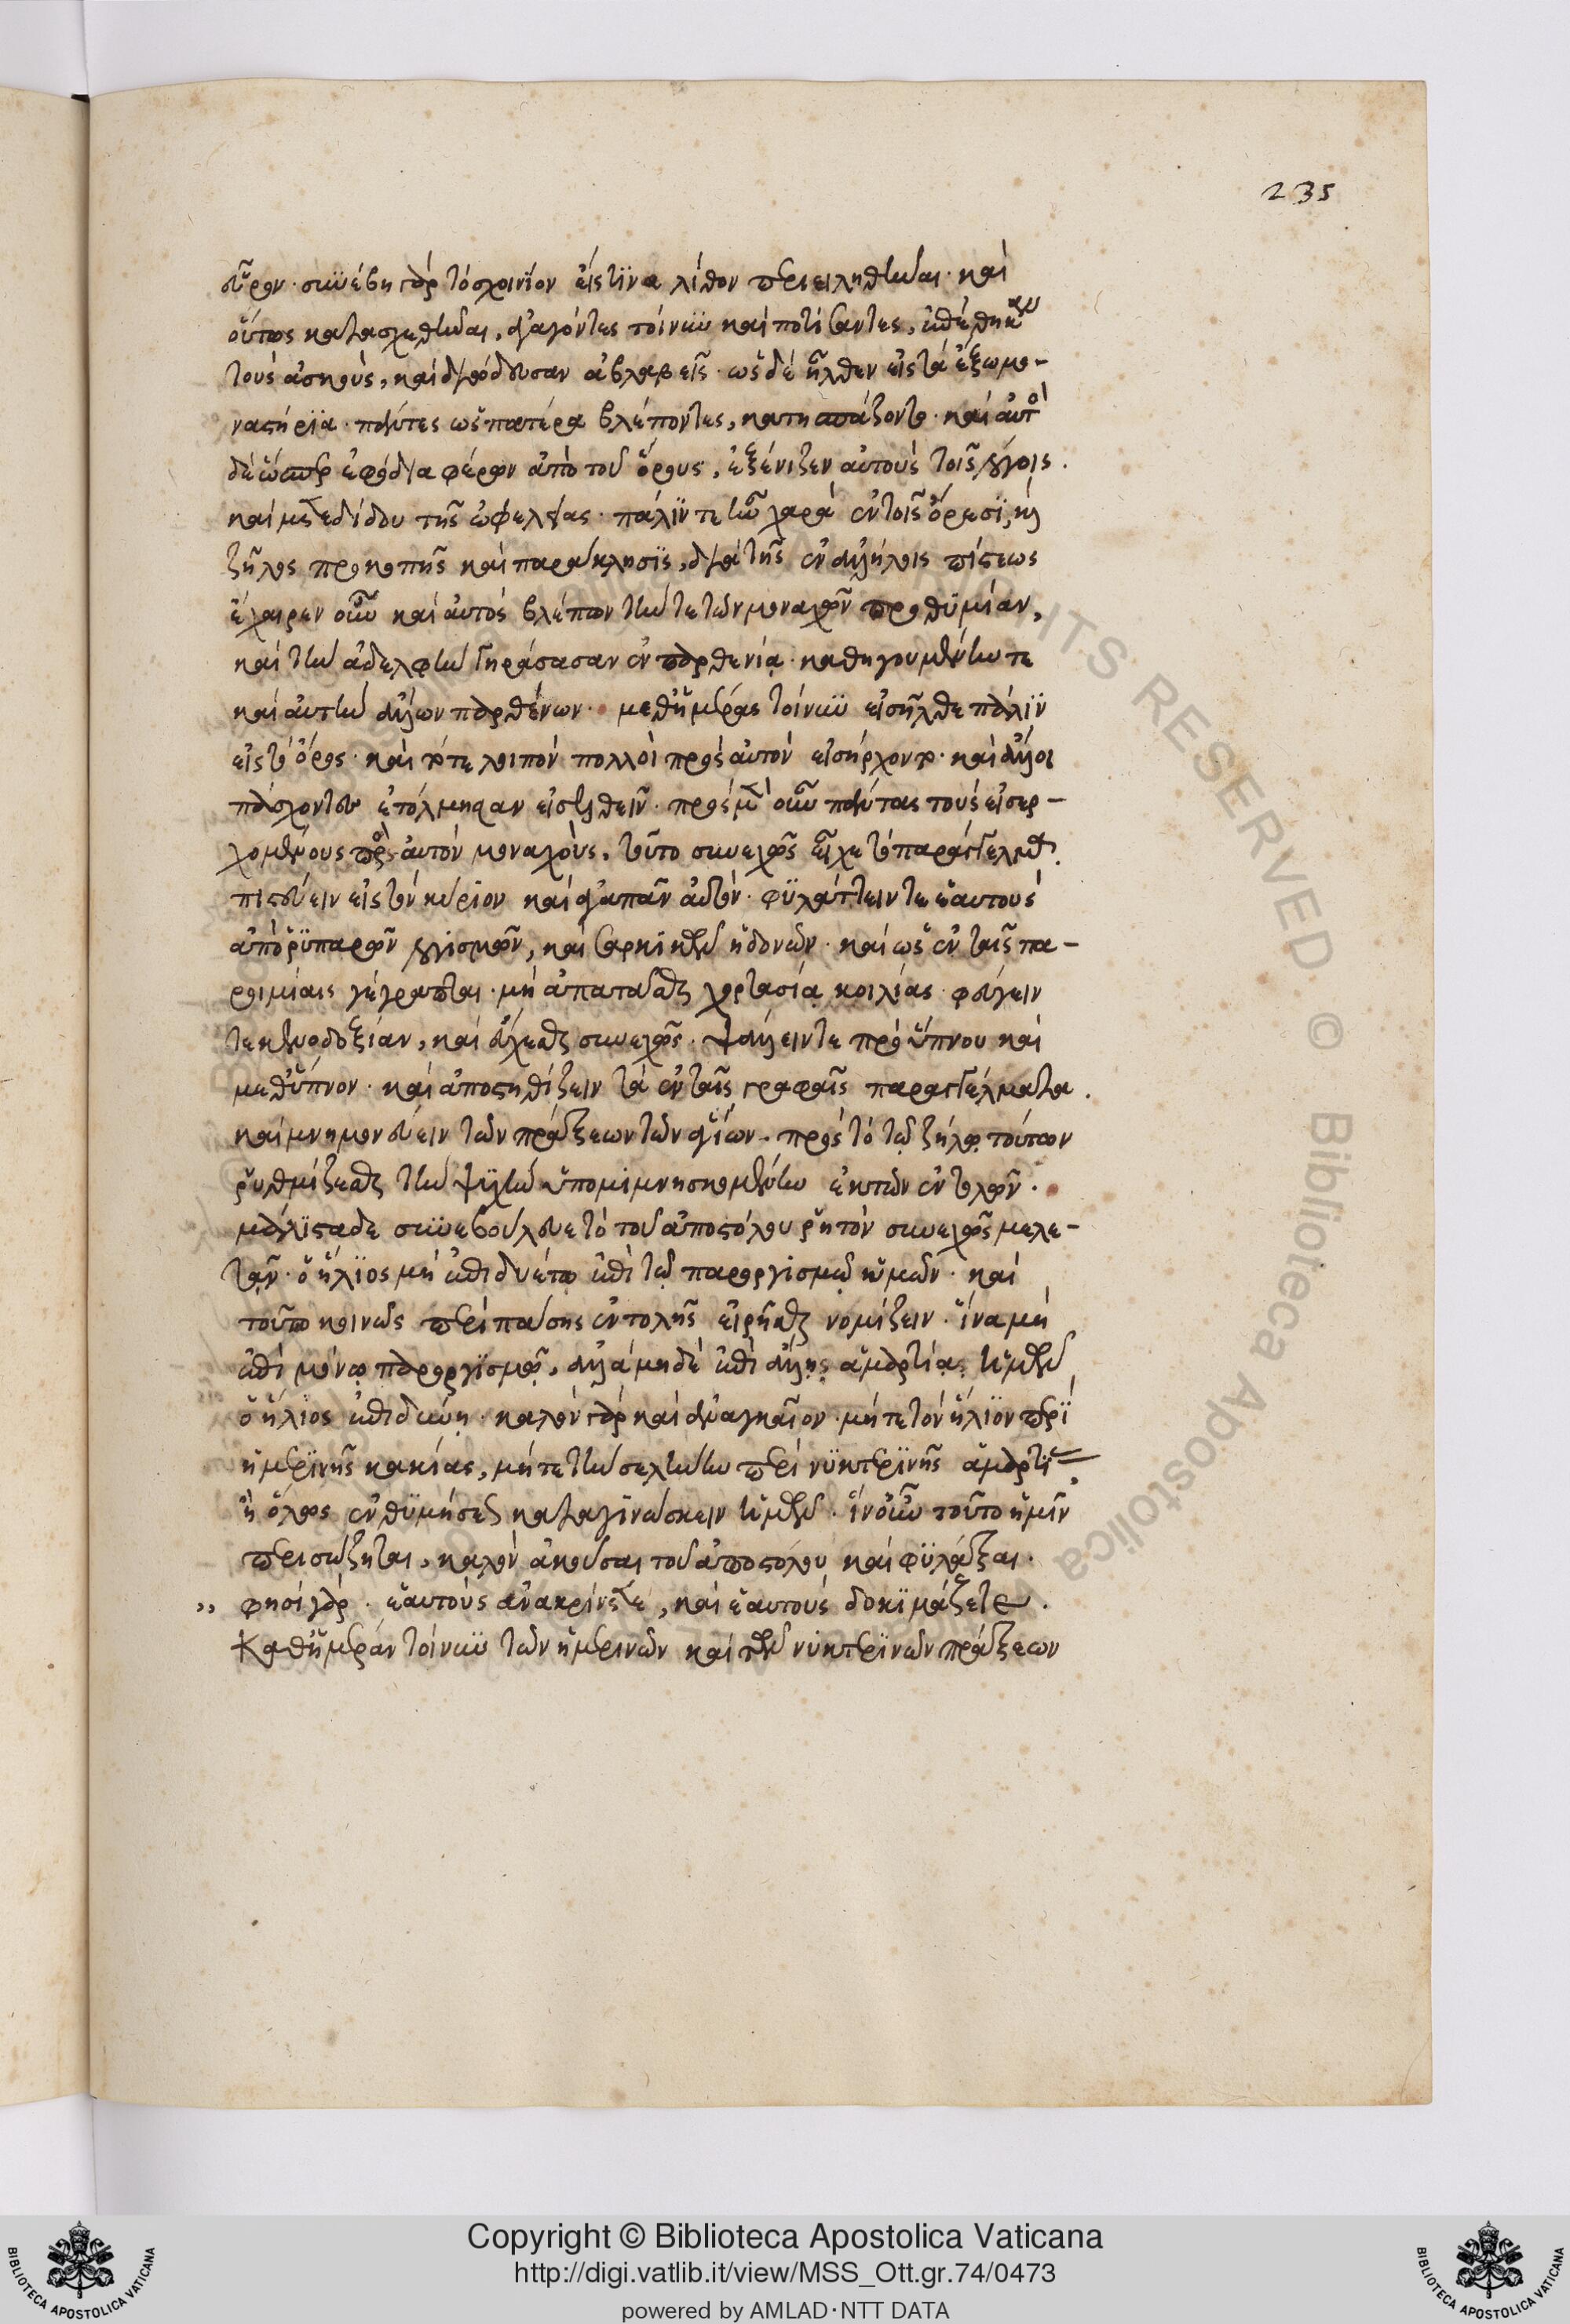 235
εὗρον· συνέβη γὰρ τὸ σχοινίον εἴς τινα λίθον περιειληθῆναι· καὶ
οὕτως κατασχεθῆναι, ἀγαγόντες τοίνυν καὶ ποτίσαντες, ἐπέθηκαν
τοὺς ἀσκοὺς, καὶ διώδευσαν ἀβλαβεῖς· ὡς δὲ ἦλθεν εἰς τὰ ἔξω μο-
ναστήρια· πάντες ὡς πατέρα βλέποντες, κατησπάζοντο· καὶ αὐτὸς
δὲ ὥσπερ ἐφόδια φέρων ἀπὸ τοῦ ὄρους, ἐξένιζεν αὐτοὺς τοῖς λόγοις.
καὶ μετεδίδου τῆς ὠφελείας· πάλιν τε ἦν χαρὰ ἐν τοῖς ὄρεσι, καὶ
ζῆλος προκοπῆς καὶ παράκλησις, διὰ τῆς ἐν ἀλλήλοις πίστεως
ἔχαιρεν οὖν καὶ αὐτὸς βλέπων τήν τε τῶν μοναχῶν προθυμίαν,
καὶ τὴν ἀδελφὴν γηράσασαν ἐν παρθενίᾳ· καθηγουμένην τε
καὶ αὐτὴν ἄλλων παρθένων· μεθ' ἡμέρας τοίνυν εἰσῆλθε πάλιν
εἰς τὸ ὄρος· καὶ τότε λοιπὸν πολλοὶ πρὸς αὐτὸν εἰσήρχοντο· καὶ ἄλλοι
πάσχοντες ἐτόλμησαν εἰσελθεῖν· πρὸς μὲν οὖν πάντας τοὺς εἰσερ-
χομένους πρὸς αὐτὸν μοναχοὺς, τοῦτο συνεχῶς εἶχε τὸ παράγγελμα.
πιστεύειν εἰς τὸν κύριον καὶ ἀγαπᾶν αὐτὸν· φυλάττειν τε ἑαυτοὺς
ἀπὸ ῥυπαρῶν λογισμῶν, καὶ σαρκικῶν ἡδονῶν· καὶ ὡς ἐν ταῖς πα-
ροιμίαις γέγραπται· μὴ ἀπατᾶσθαι χορτασίᾳ κοιλίας· φεύγειν
τε κενοδοξίαν, καὶ εὔχεσθαι συνεχῶς· ψάλλειν τε πρὸ ὕπνου καὶ
μεθ' ὕπνον· καὶ ἀποστηθίζειν τὰ ἐν ταῖς γραφαῖς παραγγέλματα.
καὶ μνημονεύειν τῶν πράξεων τῶν ἁγίων· πρὸς τὸ τῷ ζήλῳ τούτων
ῥυθμίζεσθαι τὴν ψυχὴν ὑπομιμνησκομένην ἐκ τῶν ἐντολῶν·
μάλιστα δὲ συνεβούλευε τὸ τοῦ ἀποστόλου ῥητὸν συνεχῶς μελε-
τᾶν· ὁ ἥλιος μὴ ἐπιδυέτω ἐπὶ τῷ παροργισμῷ ὑμῶν· καὶ
τοῦτο κοινῶς περὶ πάσης ἐντολῆς εἰρῆσθαι νομίζειν· ἵνα μὴ
ἐπὶ μόνῳ παροργισμῷ, ἀλλὰ μηδὲ ἐπὶ ἄλλης ἁμαρτίας ἡμῶν
ὁ ἥλιος ἐπιδύνῃ· καλὸν γὰρ καὶ ἀναγκαῖον· μήτε τὸν ἥλιον περὶ
ἡμερινῆς κακίας, μήτε τὴν σελήνην περὶ νυκτερινῆς ἁμαρτίας
ἢ ὅλως ἐνθυμήσεως καταγινώσκειν ἡμῶν· ἵν' οὖν τοῦτο ἡμῖν
περισώζηται, καλὸν ἀκοῦσαι τοῦ ἀποστόλου καὶ φυλάξαι·
,, φησὶ γάρ· ἑαυτοὺς ἀνακρίνετε, καὶ ἑαυτοὺς δοκιμάζετε.
Καθ' ἡμέραν τοίνυν τῶν ἡμερινῶν καὶ τῶν νυκτερινῶν πράξεων
ALL RIGHTS RESERVED © Biblioteca Apostolica
Copyright © Biblioteca Apostolica Vaticana
http://digi.vatlib.it/view/MSS_Ott.gr.74/0473
powered by AMLAD·NTT DATA
BIBLIOTECA APOSTOLICA VATICANA
BIBLIOTECA APOSTOLICA VATICANA